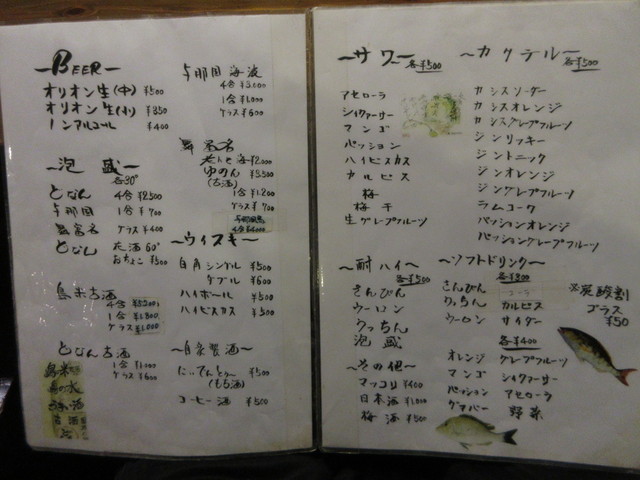 〜BEER〜
オリオン生(中) ¥500
オリオン生(小) ¥350
ノンアルコール ¥400
〜泡盛〜
各30°
どなん 4合 ¥2,500
与那国 1合 ¥700
グラス ¥400
どなん 花酒60°
おちょこ ¥500
島米古酒
1合 ¥1,800
グラス ¥1,000
どなん古酒
1合 ¥1,000
グラス ¥600
島米
与那国 海波
4合 ¥3,000
1合 ¥1,000
グラス ¥600
舞富名
¥2,000
ゆのん ¥3,500
(古酒)
1合 ¥1,200
グラス ¥700
〜ウィスキー〜
白角 シングル ¥500
ダブル ¥600
ハイボール ¥500
ハイビスカス ¥500
〜自家製酒〜
¥500
コーヒー酒 ¥500
〜サワー〜 各¥500
アセローラ
シィクァーサー
マンゴ
パッション
ハイビスカス
カルピス
梅
梅干
生グレープフルーツ
〜酎ハイ〜 各¥500
さんぴん
ウーロン
うっちん
泡盛
〜その他〜
マッコリ ¥400
日本酒 ¥1,000
梅酒 ¥500
〜カクテル〜 各¥500
カシスソーダー
カシスオレンジ
カシスグレープフルーツ
ジンリッキー
ジントニック
ジンオレンジ
ジングレープフルーツ
ラムコーク
パッションオレンジ
パッショングレープフルーツ
〜ソフトドリンク〜
各¥300
さんぴん コーラー
うっちん カルピス
ウーロン サイダー
各¥400
オレンジ グレープフルーツ
マンゴ シィクァーサー
パッション アセローラ
グァバー 野菜
※炭酸割
プラス
¥50